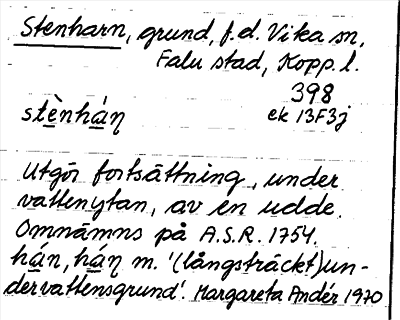 Stenharn, grund, f.d. Vika sn,
Falu stad, Kopp. l.
398
stè̱nhá̱ṇ ek 13F3j
Utgör fortsättning, under
vattenytan, av en udde.
Omnämns på A.S.R. 1754.
há̱n, há̱ṇ m. '(långsträckt) un-
dervattensgrund'. Margareta Andér 1970